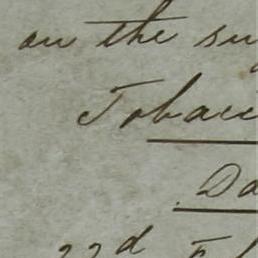 on the su
Tobacc
Da
22d Fe